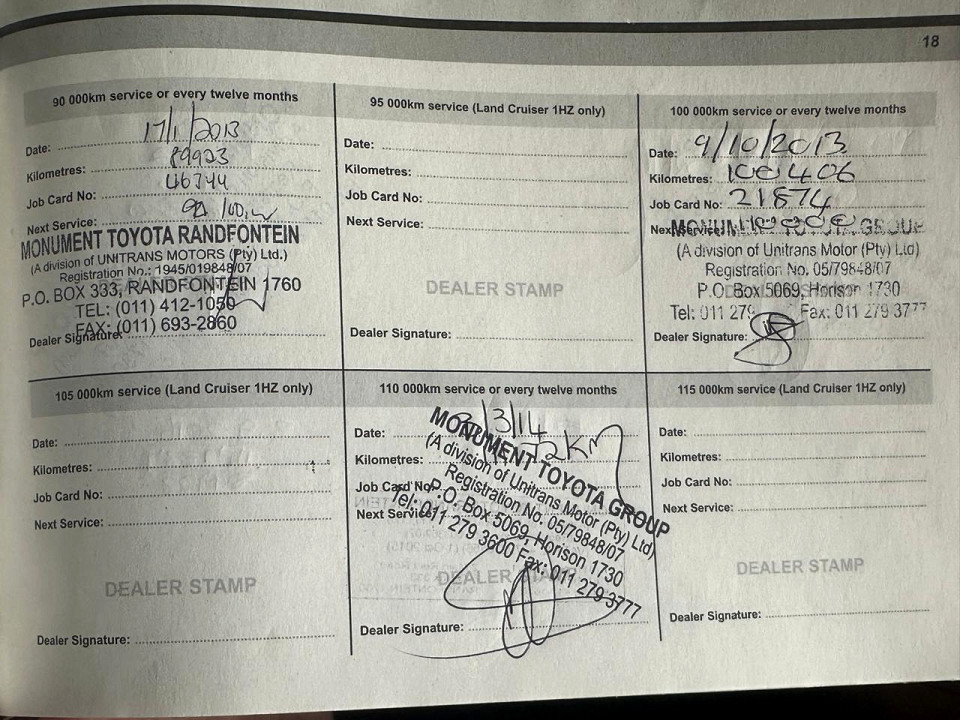 18
90 000km service or every twelve months
Date: 17/1/2013
Kilometres: 89923
Job Card No: 46744
Next Service: 100,
MONUMENT TOYOTA RANDFONTEIN
(A division of UNITRANS MOTORS (Pty) Ltd.)
Registration No.: 1945/019848/07
P.O. BOX 333, RANDFONTEIN 1760
TEL: (011) 412-1050
FAX: (011) 693-2860
Dealer Signature:
95 000km service (Land Cruiser 1HZ only)
Date:
Kilometres:
Job Card No:
Next Service:
DEALER STAMP
Dealer Signature:
100 000km service or every twelve months
Date: 9/10/2013
Kilometres: 100406
Job Card No: 21874
Next Service:
MONUMENT TOYOTA GROUP
(A division of Unitrans Motor (Pty) Ltd
Registration No. 05/79848/07
P.O. Box 5069, Horison 1730
Tel: 011 279 Fax: 011 279 3777
Dealer Signature:
105 000km service (Land Cruiser 1HZ only)
Date:
Kilometres:
Job Card No:
Next Service:
DEALER STAMP
Dealer Signature:
110 000km service or every twelve months
Date: /3/14
Kilometres:
Job Card No:
Next Service:
MONUMENT TOYOTA GROUP
(A division of Unitrans Motor (Pty) Ltd)
Registration No. 05/79848/07
P.O. Box 5069, Horison 1730
Tel: 011 279 3600 Fax: 011 279 3777
DEALER STAMP
Dealer Signature:
115 000km service (Land Cruiser 1HZ only)
Date:
Kilometres:
Job Card No:
Next Service:
DEALER STAMP
Dealer Signature: